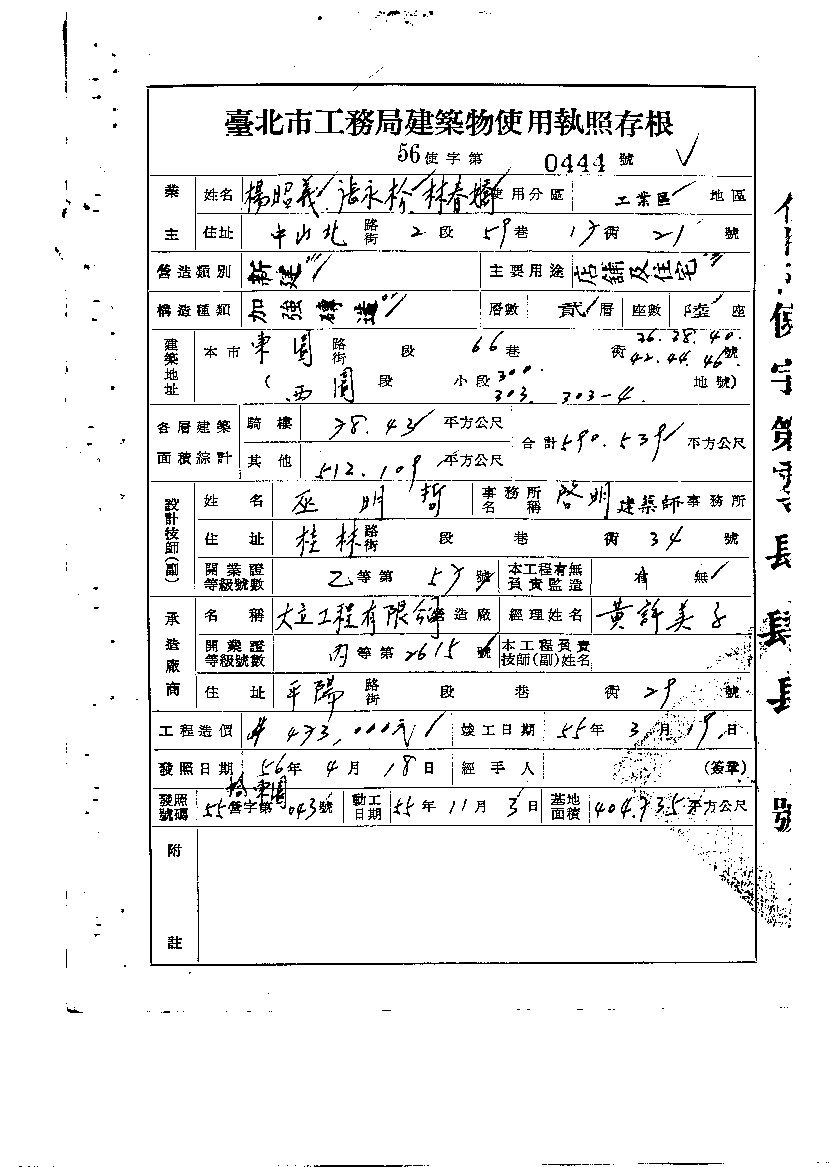 臺北市工務局建築物使用執照存根
56使字第 0444 號
業主 姓名 楊昭義 張永松 林春嬌 使用分區 工業區 地區
住址 中山北 路街 2 段 59 巷 衖 21 號
營造類別 新建 主要用途 店舖及住宅
構造種類 加強磚造 層數 貳 層 座數 陸 座
建築地址 本市 東園 路街 段 66 巷 衖 36.38.40. 42.44.46 號
(西園 段 小段 300. 303. 303-4. 地號)
各層建築面積綜計 騎樓 78.43 平方公尺 合計 590.539 平方公尺
其他 512.109 平方公尺
設計技師(副) 姓名 巫明哲 事務所名稱 啓明 建築師事務所
住址 桂林 路街 段 巷 衖 34 號
開業證等級號數 乙等第 57 號 本工程有無負責監造 有 無
承造廠商 名稱 大立工程有限公司 營造廠 經理姓名 黃許美子
開業證等級號數 丙等第 2615 號 本工程負責技師(副)姓名
住址 平陽 路街 段 巷 衖 29 號
工程造價 473,000元 竣工日期 55年 3月 19日
發照日期 56年 4月 18日 經手人 (簽章)
發照號碼 55營字第 043號 動工日期 55年 11月 3日 基地面積 404.735 平方公尺
附註
使字第零肆肆肆號